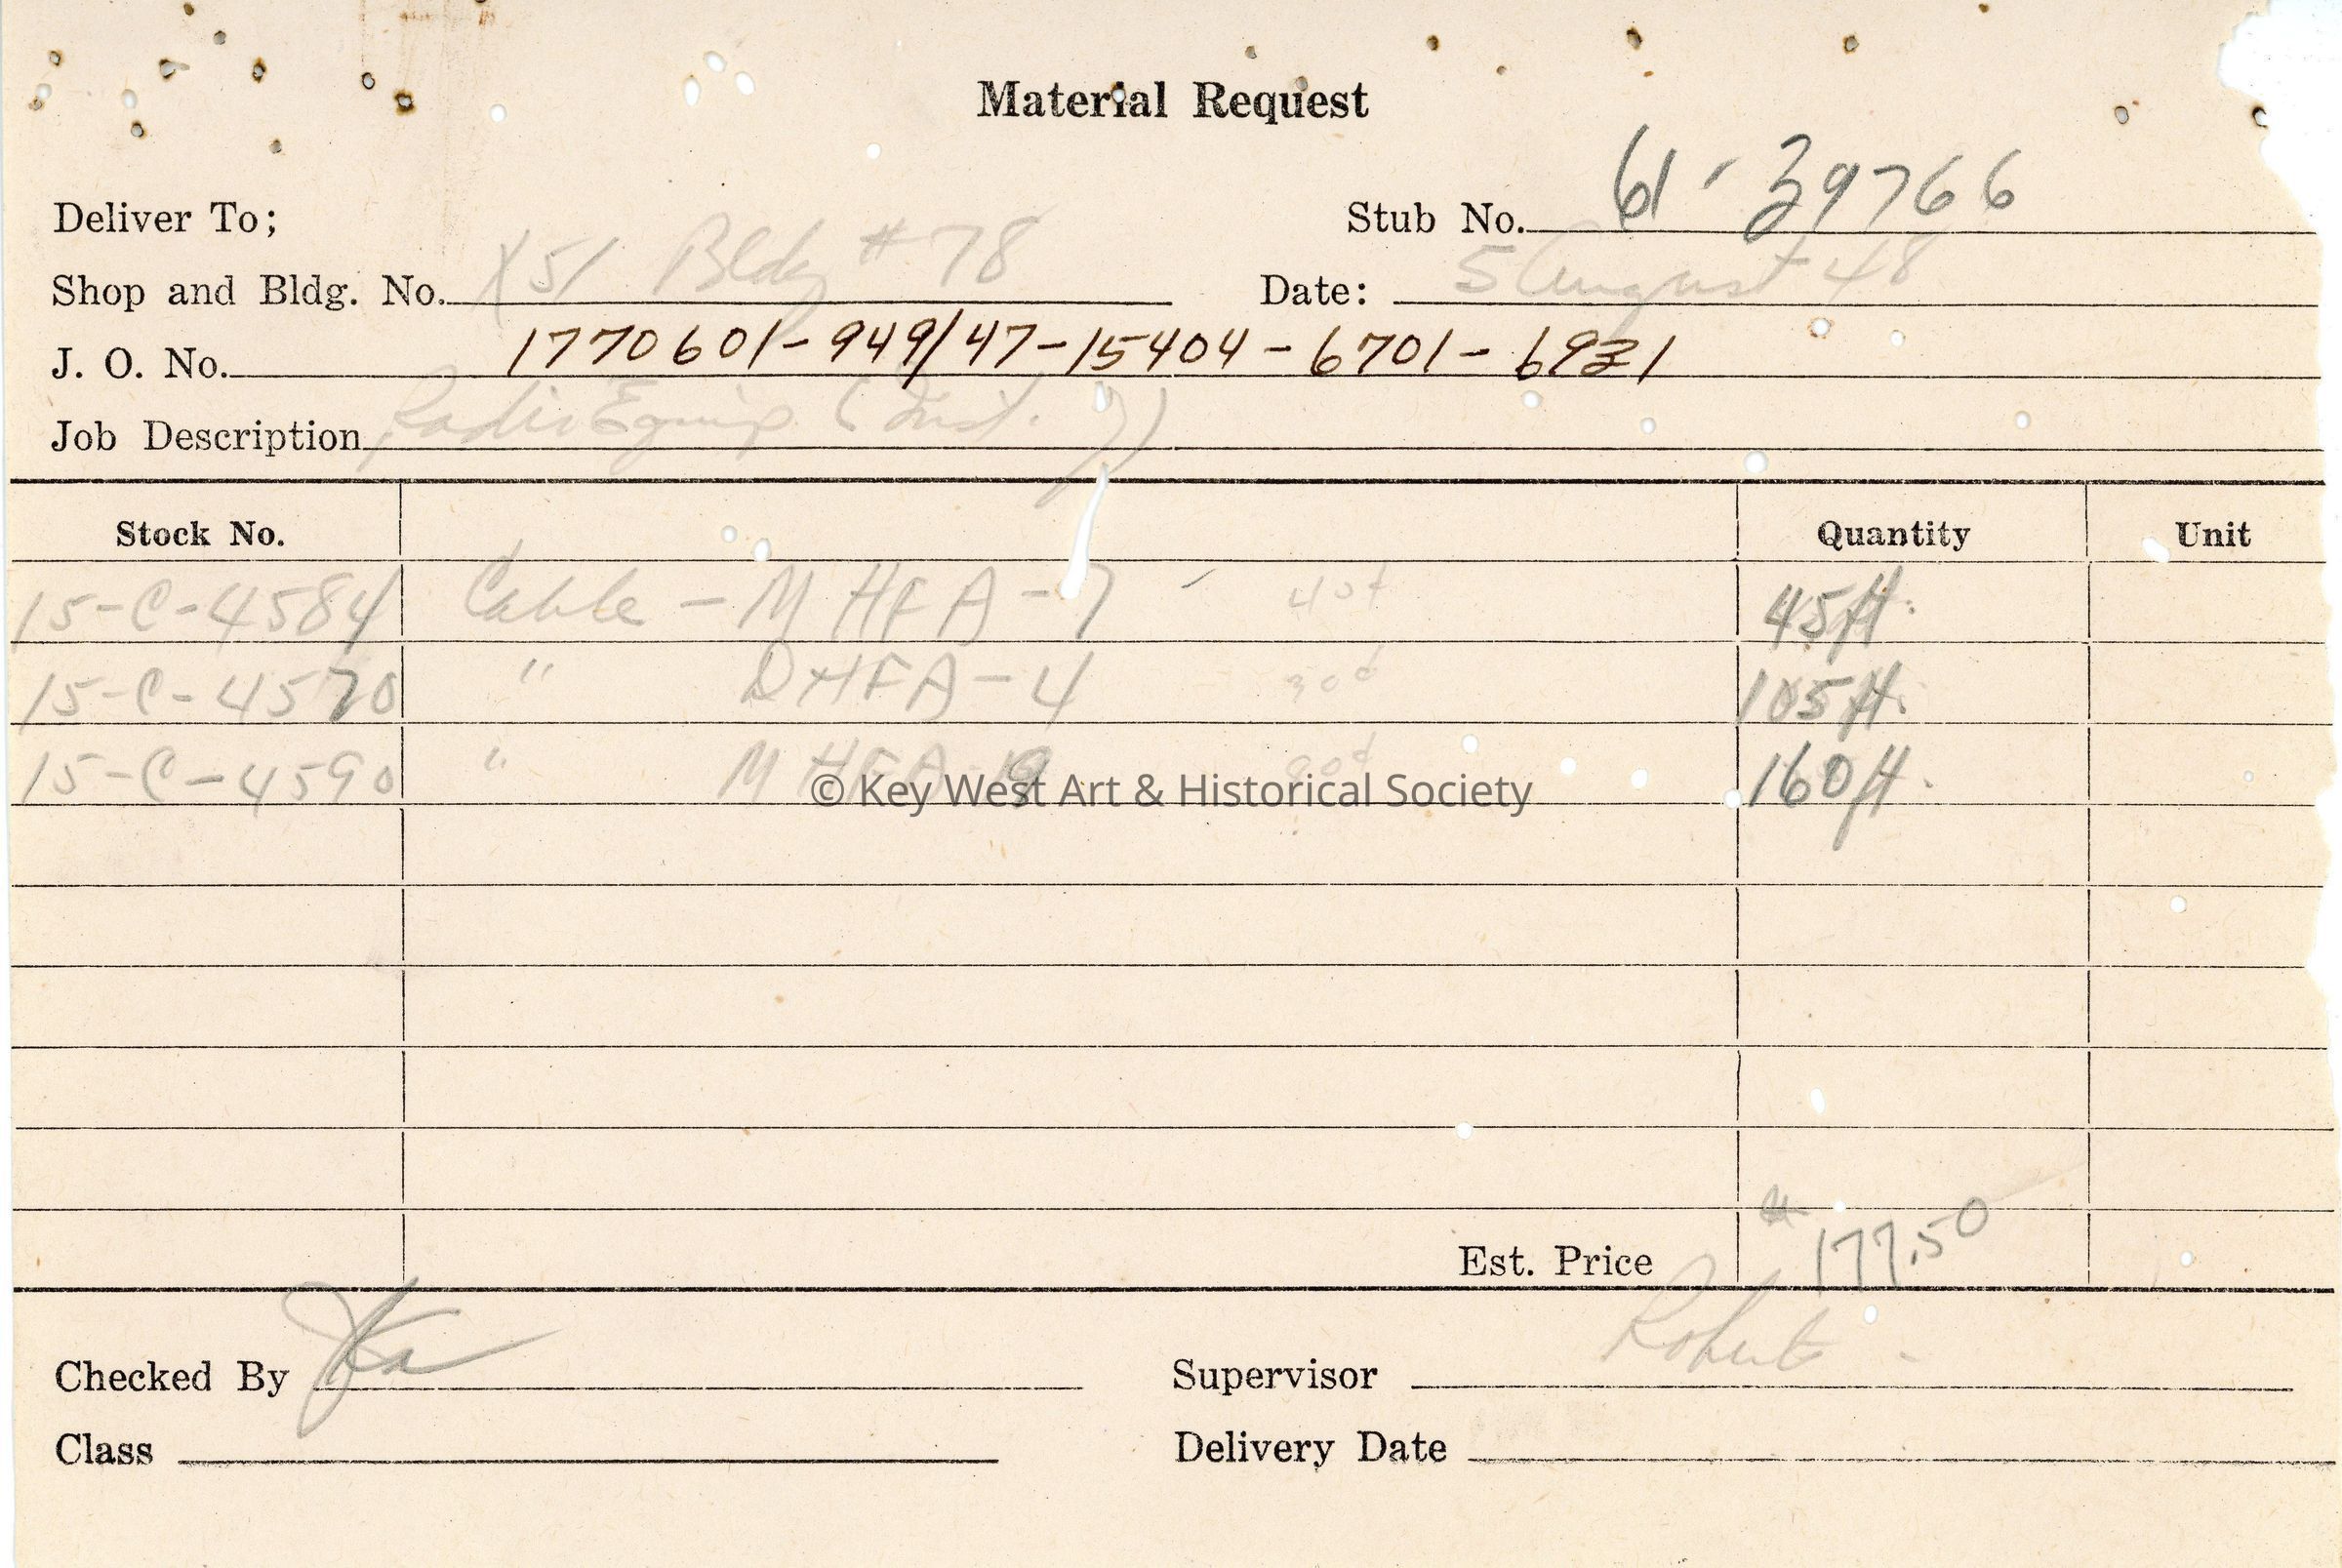 Material Request
Deliver To; Stub No. 61-39766
Shop and Bldg. No. X51 Bldg #78 Date: 5 August 48
J. O. No. 1770601-949/47-15404-6701-6921
Job Description Radio Equip (Inst. 7)
Stock No. Quantity Unit
15-C-4584 Cable - MHFA-7 - 40¢ 45 ft.
15-C-4570 " DHFA-4 30¢ 105 ft.
15-C-4590 " MHFA-19 80¢ 160 ft.
© Key West Art & Historical Society
Est. Price 177.50
Checked By Supervisor Roberts
Class Delivery Date